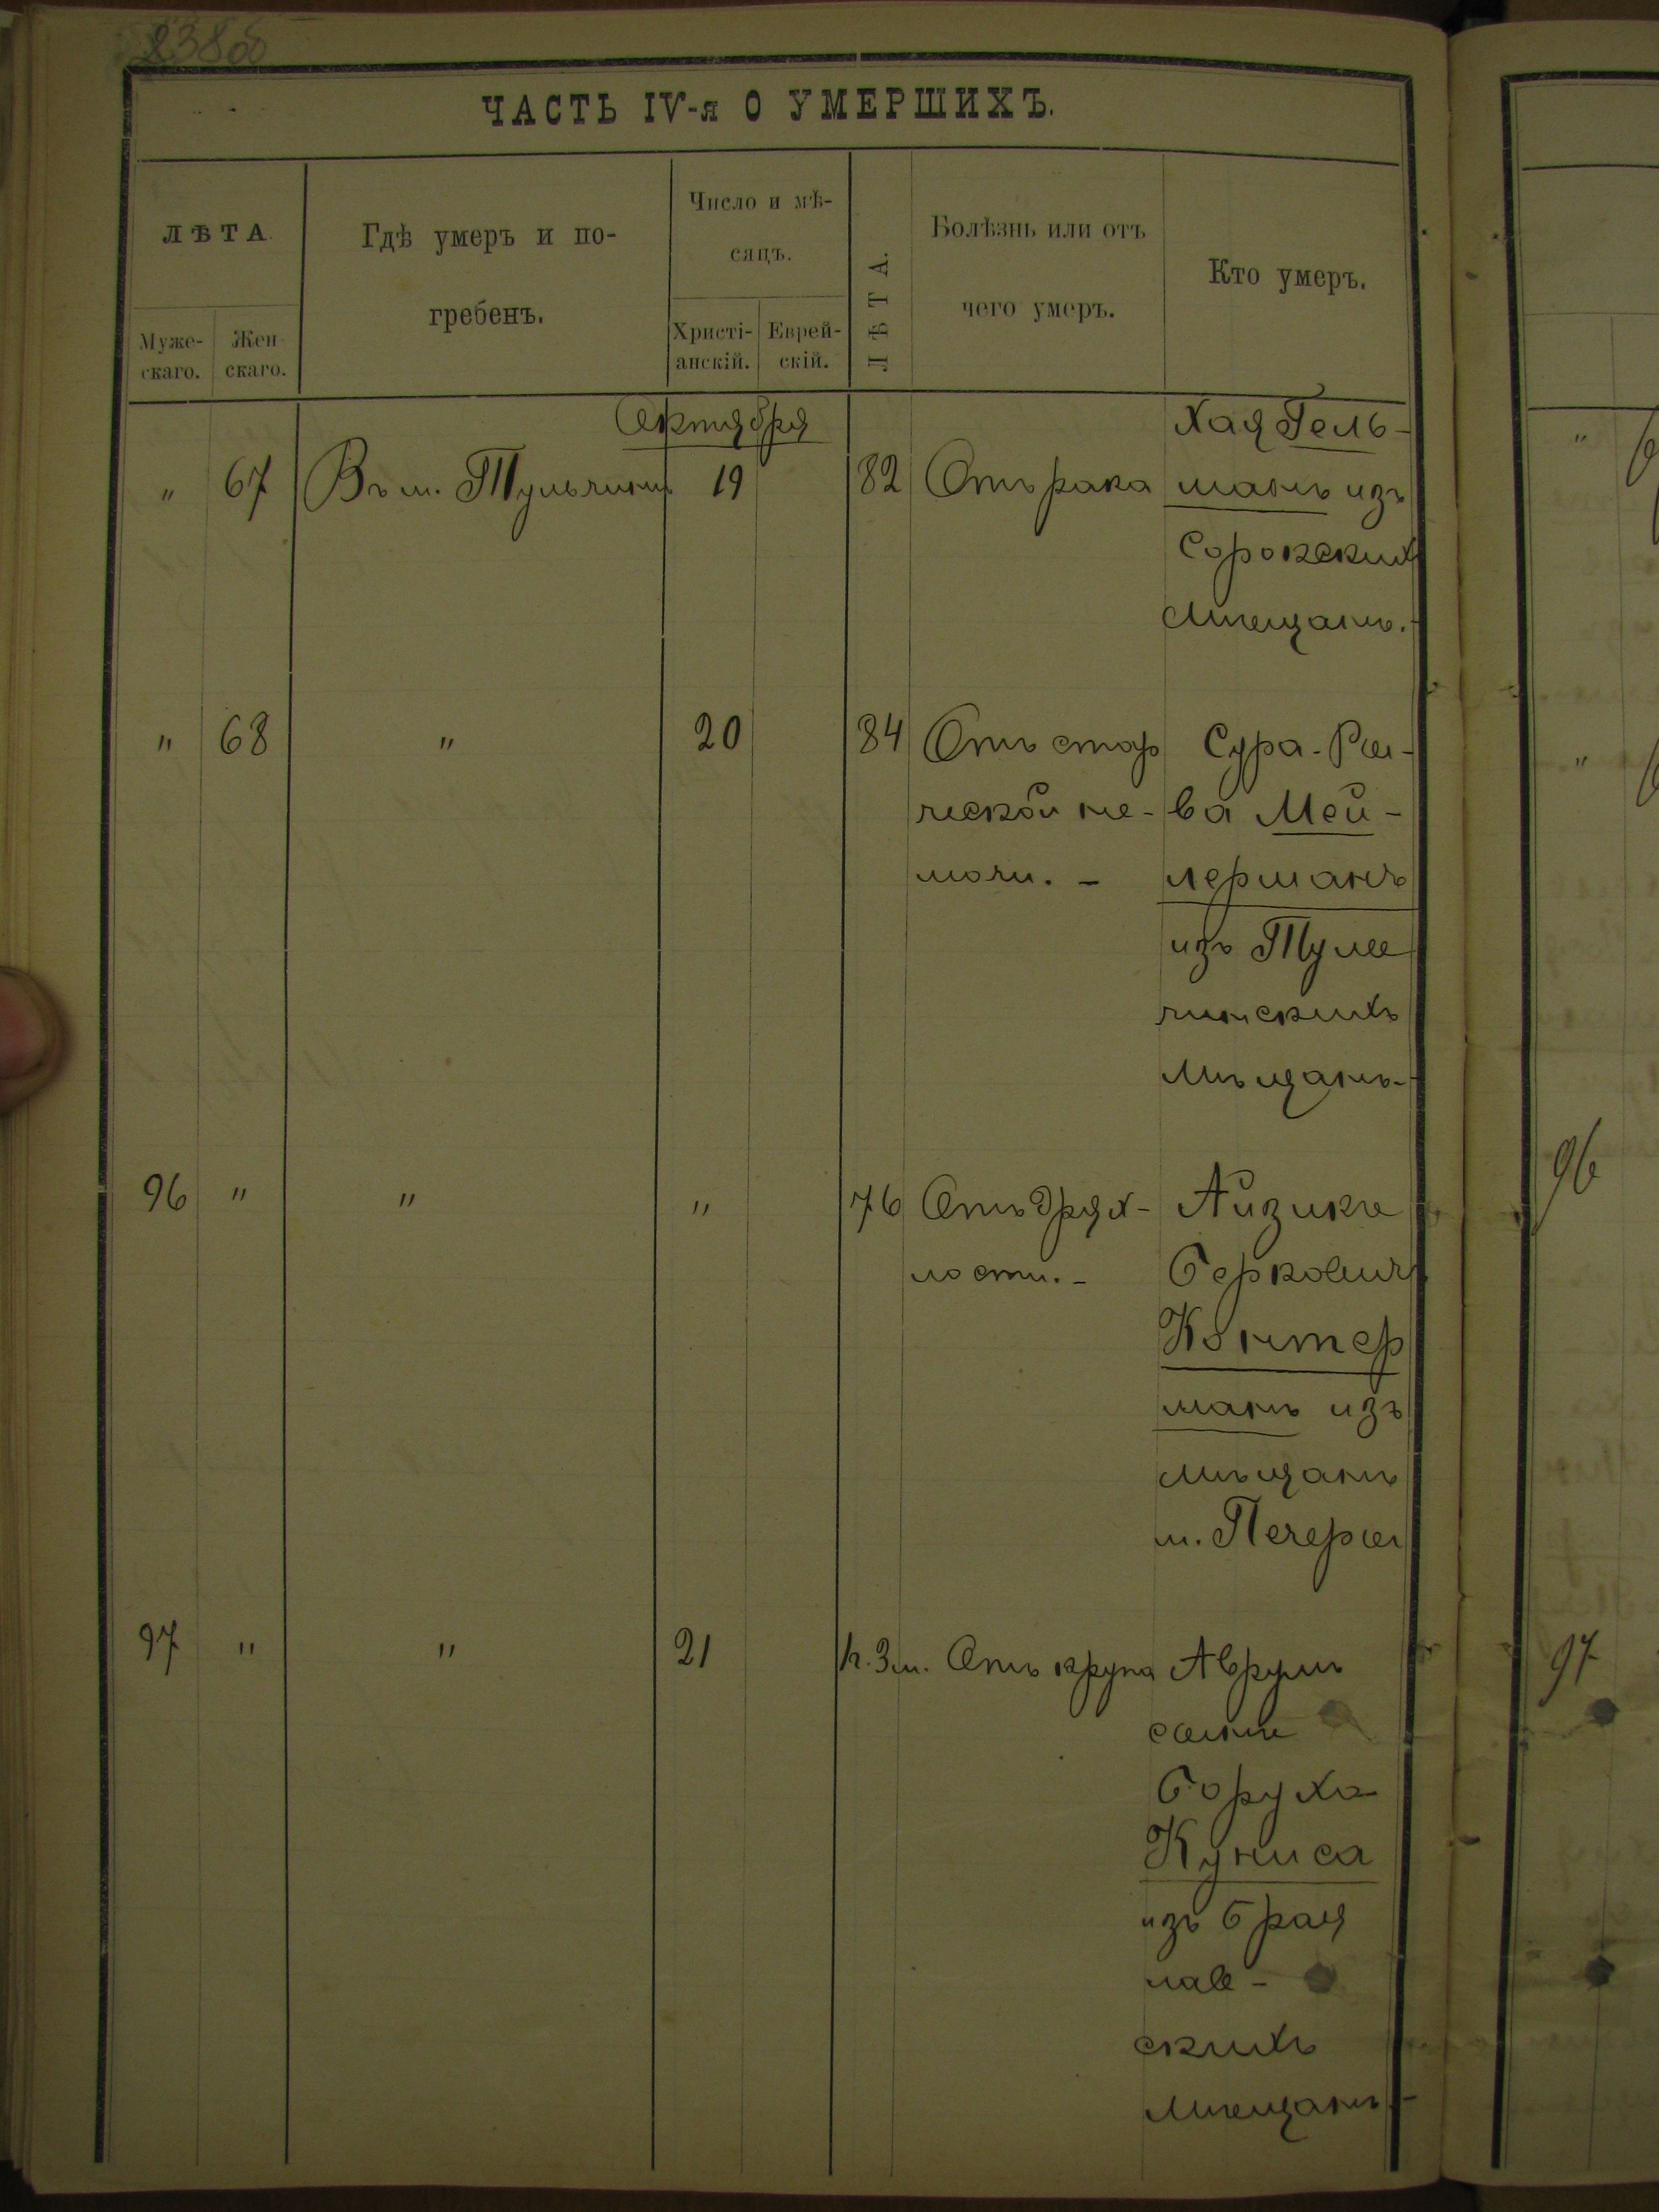 238об
ЧАСТЬ IV-я О УМЕРШИХЪ.
ЛѢТА
Муже-
скаго.
Жен
скаго.
Гдѣ умеръ и по-
гребенъ.
Число и мѣ-
сяцъ.
Христі-
анскій.
Еврей-
скій.
ЛѢТА.
Болѣзнь или отъ
чего умеръ.
Кто умеръ.
Октября
" 67 Въ м. Тульчинѣ 19 82 Отъ рака
Хая Гель-
манъ изъ
Сорокскихъ
Мѣщанъ.-
" 68 " 20 84 Отъ стар
ческой не-
мочи. -
Сура-Ры-
ва Мей-
лерманъ
изъ Туль
чинскихъ
Мѣщанъ-
96 " " " 76 Отъ дрях-
лости.-
Айзикъ
Берковичъ
Контер
манъ изъ
мѣщанъ
м. Печеры
97 " " 21 1 г. 3 м. Отъ крупа
Аврумъ
сынъ
Боруха
Куниса
изъ Брац
лав-
скихъ
Мѣщанъ-
96
97